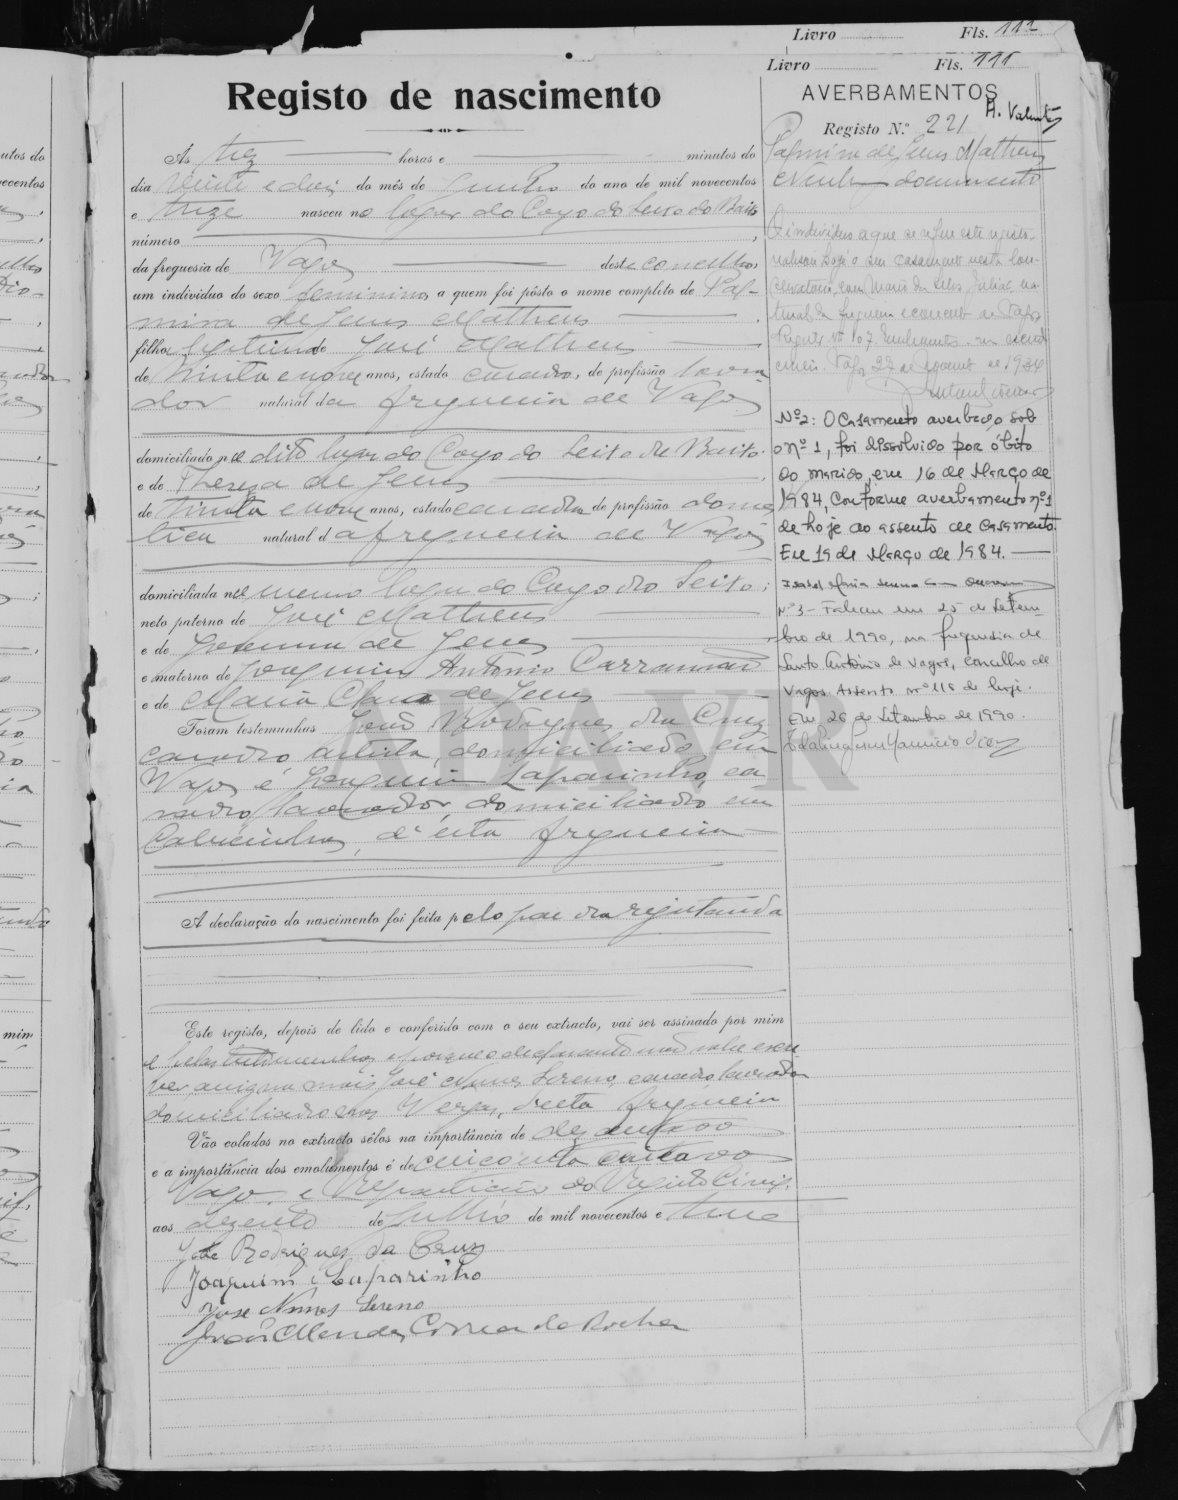 Livro Fls. 112
Livro Fls. 111
Registo de nascimento
AVERBAMENTOS
A. Valente
Registo N.º 221
Palmira de Jesus Matheus
documento
Ás trez horas e minutos do
dia vinte e dois do mês de Junho do ano de mil novecentos
e treze nasceu no lugar do Cayo do Seixo do Barito
número
da freguesia de Vagos deste concelho,
um indivíduo do sexo feminino, a quem foi pôsto o nome completo de Pal-
mira de Jesus Matheus
filha legitima de José Matheus
de trinta e nove anos, estado casado, de profissão lavra
dor natural da freguesia de Vagos
domiciliado no dito lugar do Cayo do Seixo de Barito
e de Thereza de Jesus
de trinta e nove anos, estado casada de profissão domes
tica natural da freguesia de Vagos
domiciliada no mesmo lugar do Cayo do Seixo;
neto paterno de José Matheus
e de de Jesus
e materno de Joaquim António Carramão
e de Maria Clara de Jesus
Foram testemunhas José Rodrigues da Cruz
casado artista, domiciliado em
Vagos e Joaquim Laparinho, ca
sado, lavrador, domiciliado em
d'esta freguesia
A declaração do nascimento foi feita pelo pae da registanda
Este registo, depois de lido e conferido com o seu extracto, vai ser assinado por mim
e pelas testemunhas e porque o declarante não sabe escre
ver, assigna mais José Nunes Sereno, casado, lavrador
domiciliado nas Vergas, desta freguesia
Vão colados no extracto sêlos na importância de dez centavos
e a importância dos emolumentos é de cincoenta centavos
Vagos, e Repartição do Registo Civil,
aos dezoito de Julho de mil novecentos e treze
José Rodrigues da Cruz
Joaquim Laparinho
José Nunes Sereno
João Mendes Correa da Rocha
O individuo a que se refere este registo
realisou hoje o seu casamento nesta Con-
servatoria, com Mario da Silva Julião, na-
tural da freguesia e concelho de Vagos
Registo nº 107.
Vagos 27 de de 1934
Nº2: O casamento averbado sob
o nº 1, foi dissolvido por óbito
do marido, em 16 de Março de
1984, conforme averbamento nº1
de hoje ao assento de casamento.
Em 19 de Março de 1984.
Isabel Maria
Nº3 - Faleceu em 25 de Setem-
bro de 1990, na freguesia de
Santo António de Vagos, concelho de
Vagos. Assento nº 115 de hoje.
Em 26 de Setembro de 1990.
ADAVR